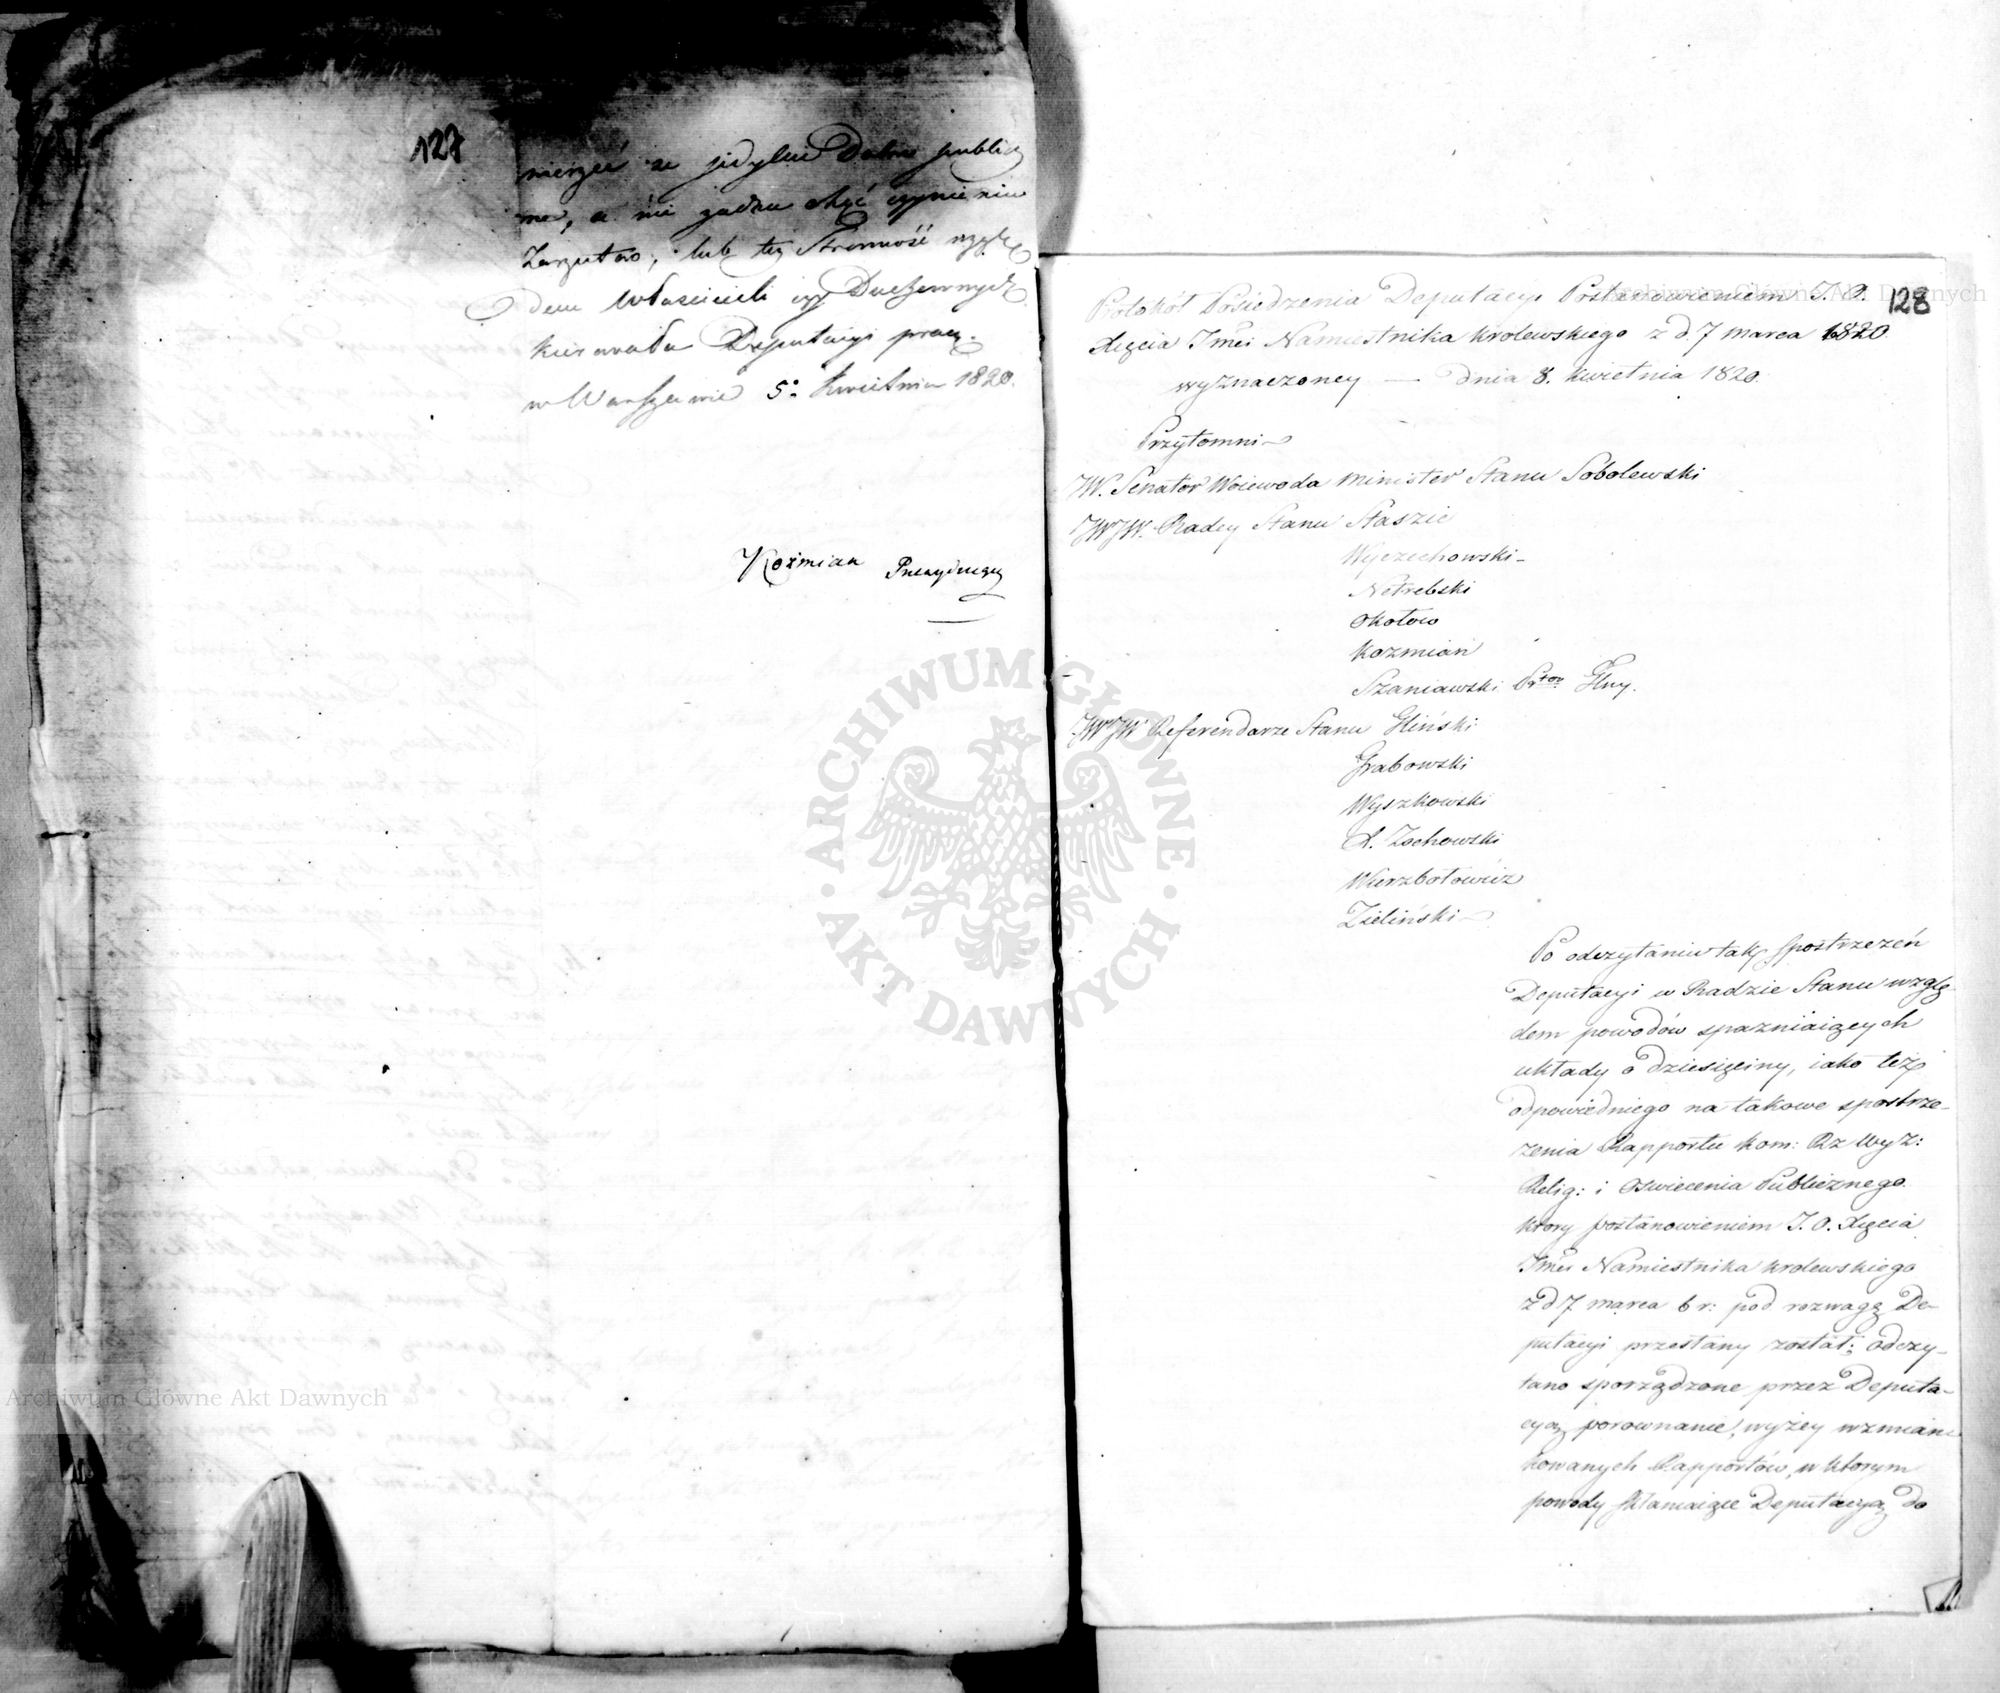 127
mierzeć ze jedynie Dobro public
zne, a nie żadna chęć czynienia
Zarzutów, lub też Stronność wzglę
dem Właścicieli czy Duchownych
kierowała Deputacyi pracą.
w Warszawie 5º Kwietnia 1820.
Koźmian Prezydujący
128
Protokół Posiedzenia Deputacyi Postanowieniem J. O.
Xięcia Jmći Namiestnika Krolewskiego z d. 7 Marca 1820.
wyznaczoney — dnia 8. Kwietnia 1820.
Przytomni
JW. Senator Woiewoda Minister Stanu Sobolewski
JWJW. Radcy Stanu Staszic
Wyczechowski
Netrebski
Okołow
Kozmian
Szaniawski Prtor Glny.
JWJW Referendarze Stanu Gliński
Grabowski
Wyszkowski
X. Zochowski
Wierzbołowicz
Zieliński
Po odczytaniu tak spostrzezeń
Deputacyi w Radzie Stanu wzglę-
dem powodów spazniaiących
układy o dziesięciny, iako też
odpowiedniego na takowe spostrze-
zenia Rapportu Kom: Rz Wyz:
Relig: i Oswiecenia Publicznego
ktory postanowieniem J. O. Xięcia
Jmći Namiestnika Krolewskiego
z d 7 marca b r: pod rozwagę De-
putacyi przesłany został; odczy-
tano sporządzone przez Deputa-
cyą porownanie, wyżey wzmian
kowanych Rapportów, w ktorym
powody skłaniaiące Deputacyą do
Archiwum Główne Akt Dawnych
Archiwum Główne Akt Dawnych
ARCHIWUM GŁÓWNE
AKT DAWNYCH